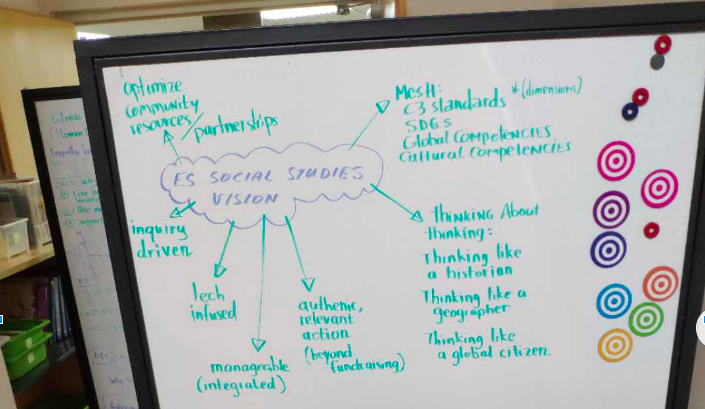 optimize
community
resources/partnerships
MesH:
C3 standards *(dimensions)
SDGs
Global Competencies
Cultural Competencies
ES SOCIAL STUDIES
VISION
inquiry
driven
Tech
infused
manageable
(integrated)
authenic,
relevant
action
(beyond
fundraising)
Thinking About
thinking:
Thinking like
a historian
Thinking like a
geographer
Thinking like
a global citizen